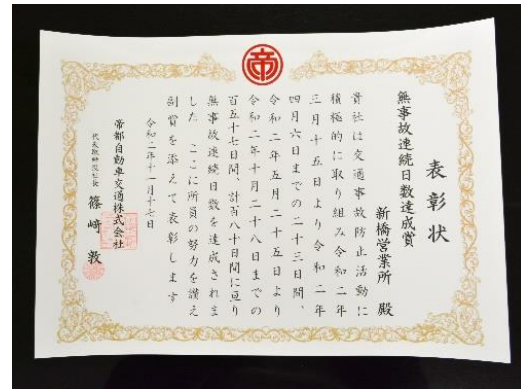 帝
表彰状
無事故連続日数達成賞
新橋営業所 殿
貴社は交通事故防止活動に
積極的に取り組み令和二年
三月十五日より令和二年
四月六日までの二十三日間、
令和二年五月二十五日より
令和二年十月二十八日までの
百五十七日間、計百八十日間に亘り
無事故連続日数を達成されま
した ここに所員の努力を讃え
副賞を添えて表彰します
令和二年十一月十七日
帝都自動車交通株式会社
代表取締役社長 篠﨑 敦